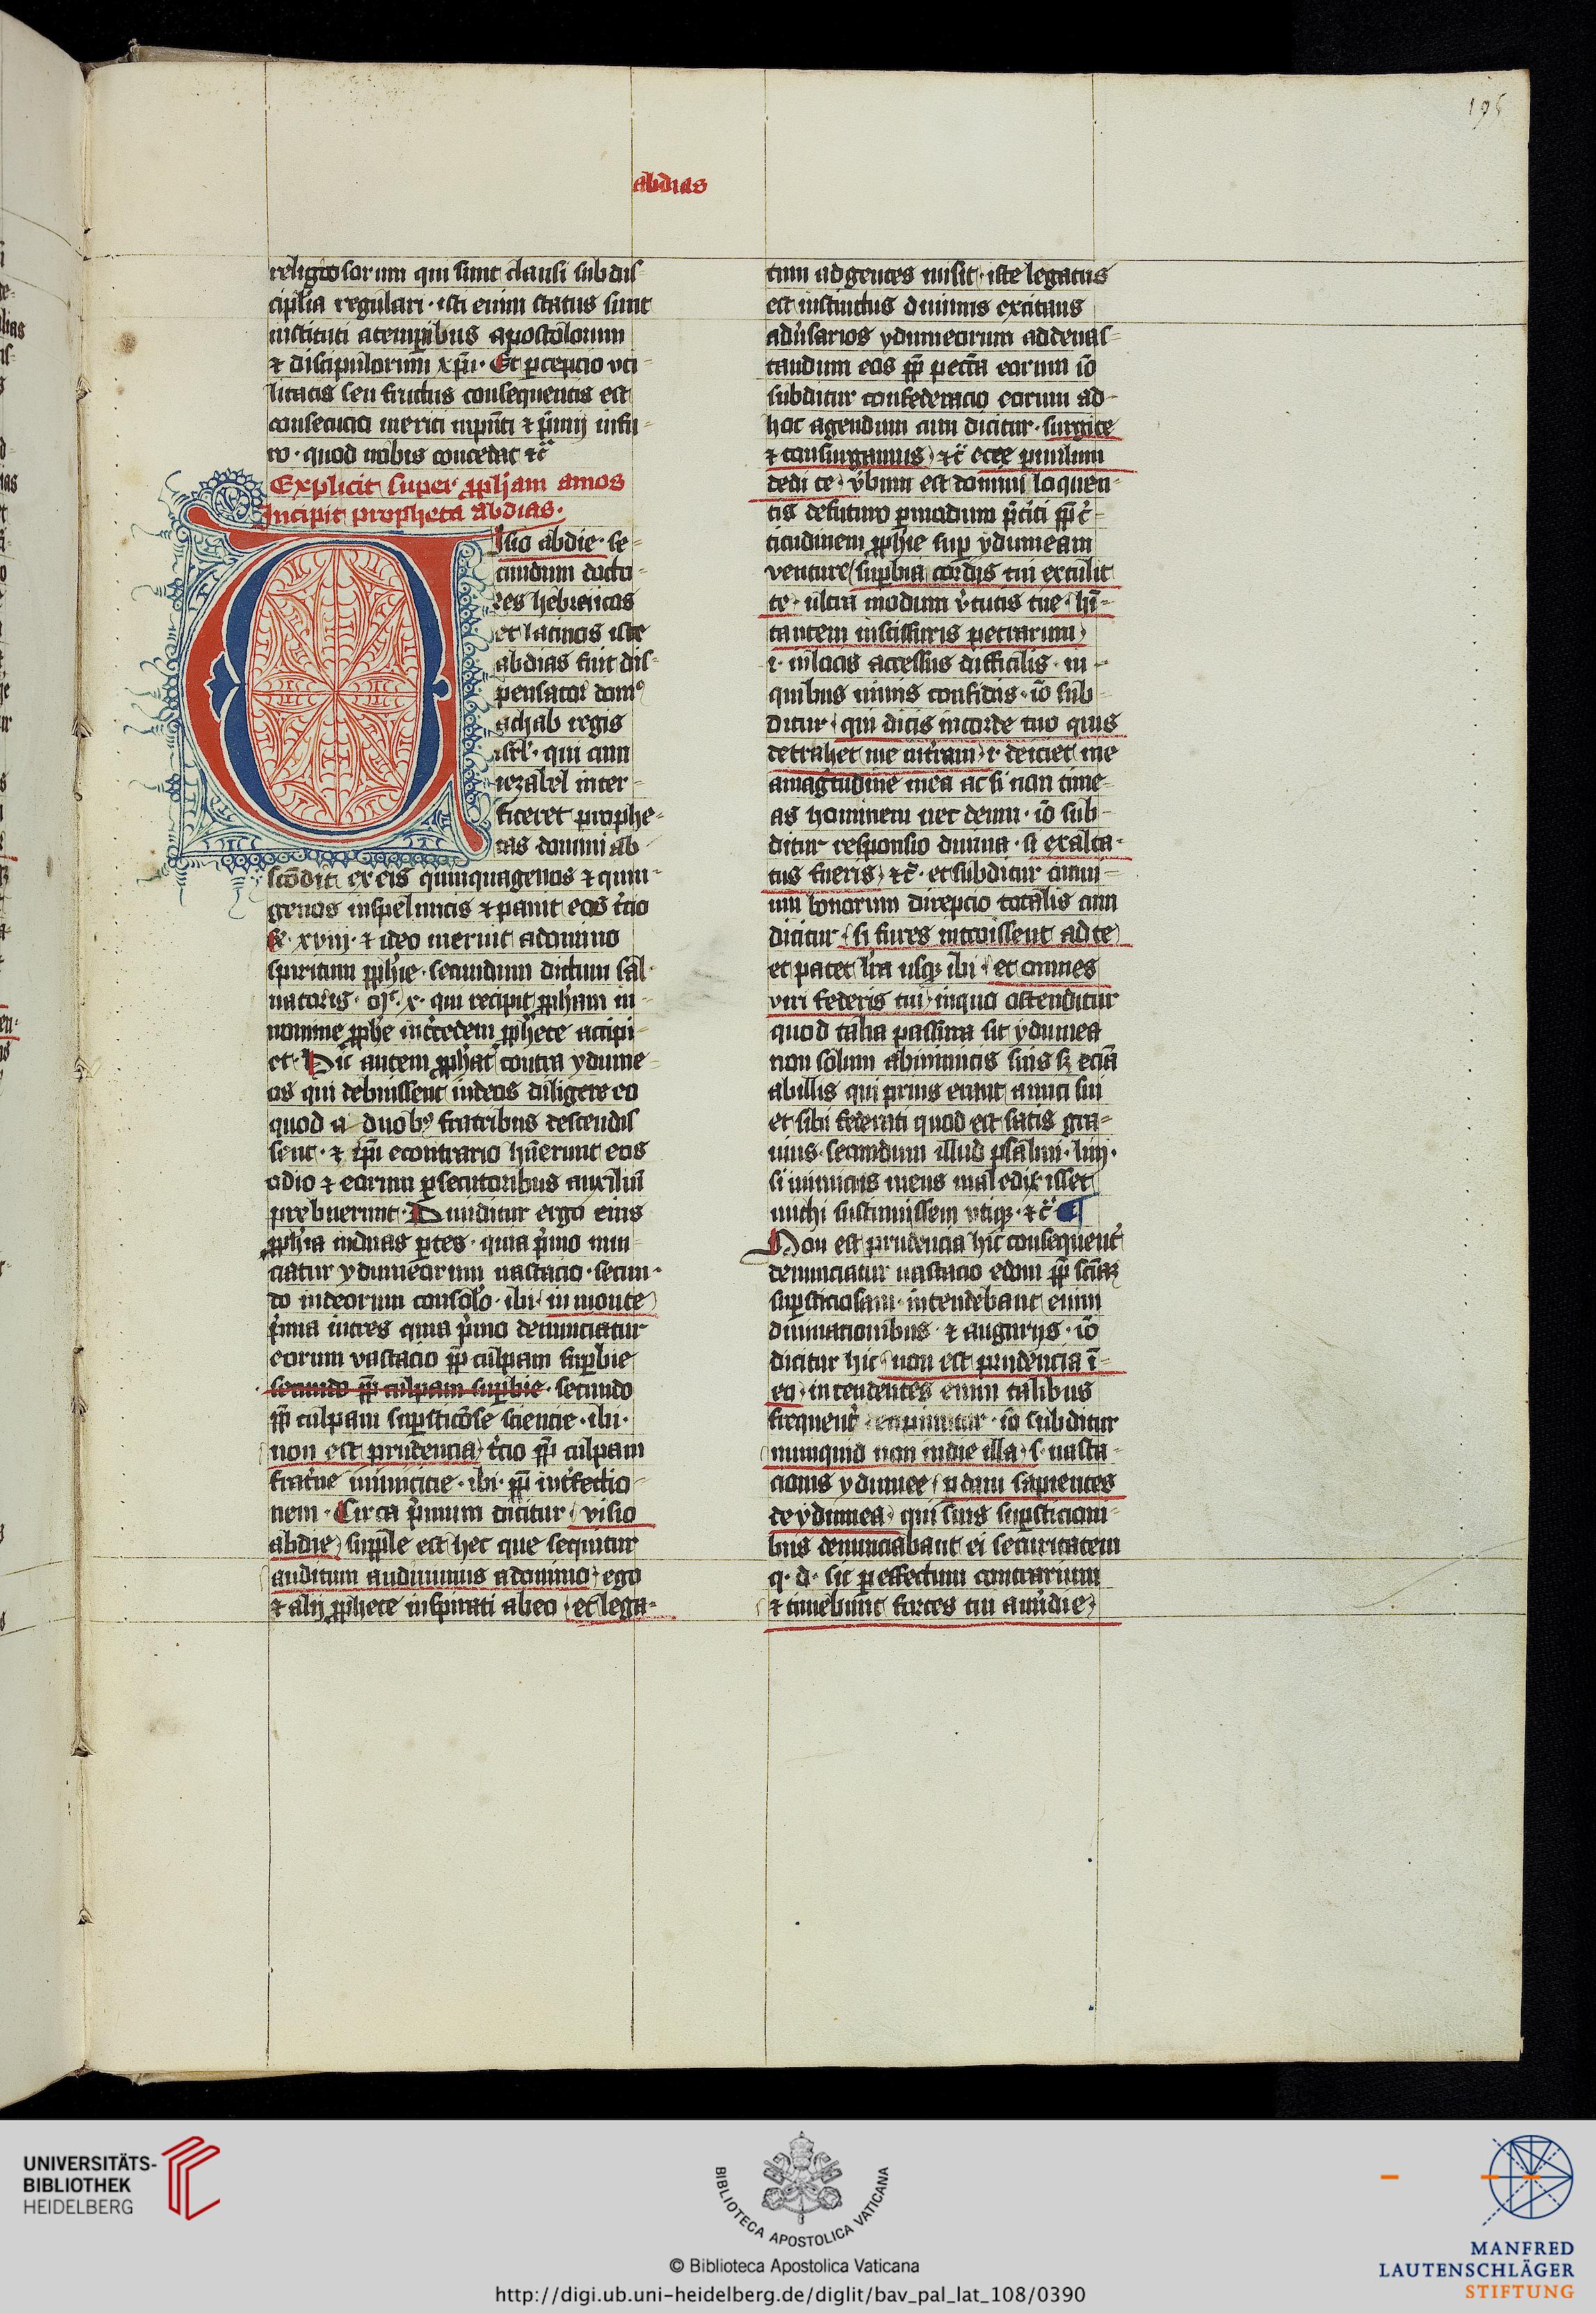 195
abdias
religiosorum qui sunt clausi sub dis-
ciplīa regulari · isti enim status sunt
instituti a tempībus apostolorum
⁊ discipulorum xp̄i · Et p̄cepcio vti-
litatis seu fructus consequentis est
consecucio meriti in p̄nti ⁊ p̄mij in fu-
ro · quod nobis concedat ⁊c̄
Explicit super ꝓpham amos
Incipit propheta abdias.
Visio abdie · se-
cundum docto-
res hebraicos
et latinos iste
abdias fuit dis-
pensator domꝰ
achab regis
isrl̄ · qui cum
iezabel inter-
ficeret prophe-
tas domini ab-
scōdit ex eis quinquagenos ⁊ quin-
genos in speluncis ⁊ pauit eos t̄cio
R̄ · xviij · ⁊ ideo meruit a domino
spiritum ꝓphīe · secundum dictum sal-
uatoris · m̄t · x · qui recipit ꝓpham in
nomine ꝓphē mercedem ꝓphete accipi-
et · Hic autem ꝓphat contra ydume-
os qui debuissent iudeos diligere eo
quod a duobꝰ fratribus descendis
sent · ⁊ tn̄ econtrario hūerunt eos
odio ⁊ eorum ꝑsecutoribus auxiliū
prebuerunt · Diuiditur ergo eius
ꝓphīa in duas ꝑtes · quia p̄mo nun-
ciatur ydumeorum uastacio · secun-
do iudeorum consolō · ibi · in monte
p̄ma in tres quia p̄mo denunciatur
eorum vastacio ꝓp̄ culpam suꝑbie
secundo ꝓp̄ culpam suꝑbie · secundo
ꝓp̄ culpam suꝑsticōse sciencie · ibi ·
non est prudencia t̄cio ꝓp̄ culpam
frat̄ne inimicicie · ibi · ꝓp̄ int̄fectio-
nem · Circa p̄mum dicitur · visio
abdie supple est hec que sequitur
auditum audiuimus a domino · ego
⁊ alij ꝓphete inspirati ab eo · et lega-
tum ad gentes misit · iste legatus
est instinctus diuinus excitans
adūsarios ydumeorum ad deuas-
tandum eos ꝓp̄ pecc̄a eorum iō
subditur confederacio eorum ad
hoc agendum cum dicitur · surgite
⁊ consurgamus ⁊c̄ ecce paruulum
dedi te v̄bum est domini loquen-
tis de futuro ꝑ modum p̄t̄iti ꝓp̄ c̄-
titudinem ꝓphīe suꝑ ydumeam
venture suꝑbia cordis tui extulit
te · ultra modum v̄tutis tue · hī-
tantem in scissuris petrarum
i · in locis accessus difficilis · in
quibus nimis confidis · iō sub-
ditur · qui dicis in corde tuo quis
detrahet me in t̄ram · i · deiciet me
a magitudine mea ac si non time-
as hominem nec deum · iō sub-
ditur responsio diuina · si exalta-
tus fueris ⁊c̄ · et subditur omni-
um bonorum direpcio totalis cum
dicitur · si fures introissent ad te
et patet lr̄a usqꝫ ibi · et omnes
viri federis tui in quo ostenditur
quod talia passura sit ydumea
non solum ab inimicis suis sꝫ eciā
ab illis qui prius erant amici sui
et sibi federati quod est satis gra-
uius · secundum illud psalmi · liiij ·
si inimicus meus maledixisset
michi sustinuissem vtiqꝫ · ⁊c̄ ¶
Non est prudencia hic consequent̄
denunciatur uastacio edom ꝓp̄ sciam
suꝑsticiosam · intendebant enim
diuinacionibus · ⁊ augurijs · iō
dicitur hic · non est prudencia ī
eo · intendentes enim talibus
frequent̄ decipiuntur · iō subditur
numquid non in die illa · s · uasta-
cionis ydumee ꝑdam sapientes
de ydumea qui suis suꝑsticioni-
bus denunciabant ei securitatem
q · d · sic ꝑ effectum contrarium
⁊ timebunt fortes tui a meridie
UNIVERSITÄTS-
BIBLIOTHEK
HEIDELBERG
BIBLIOTECA APOSTOLICA VATICANA
© Biblioteca Apostolica Vaticana
http://digi.ub.uni-heidelberg.de/diglit/bav_pal_lat_108/0390
MANFRED
LAUTENSCHLÄGER
STIFTUNG